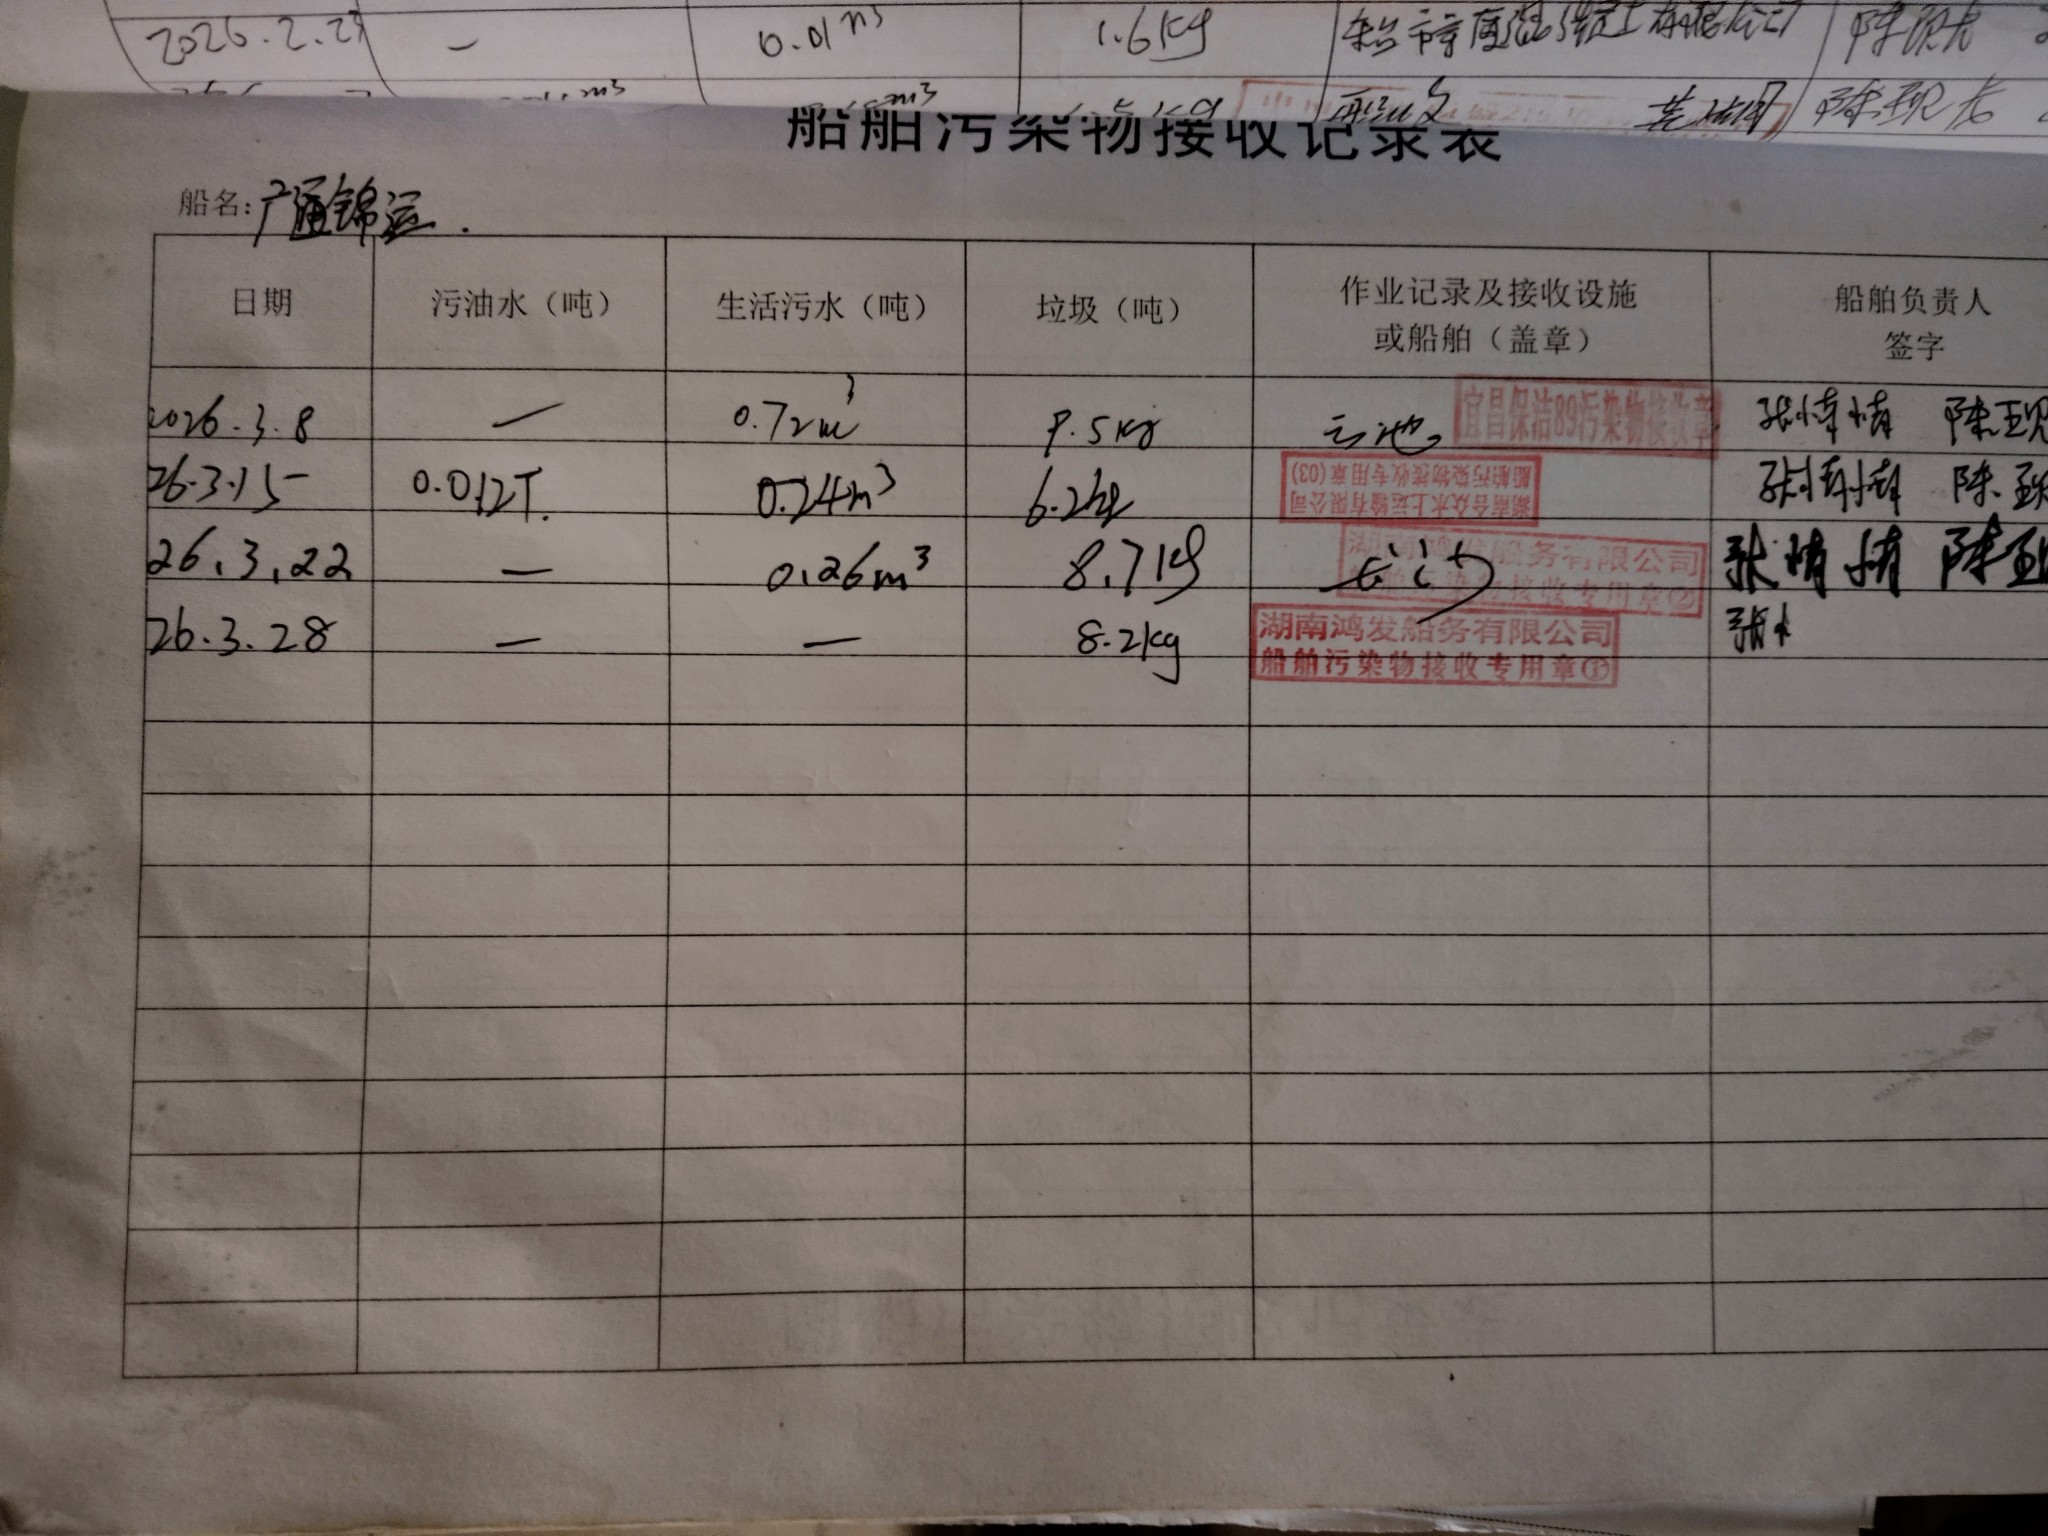 2026.2.27 — 0.01m³ 1.6kg
m³ m³ 陈亚龙
船舶污染物接收记录表
船名: 广通锦运.
日期 污油水（吨） 生活污水（吨） 垃圾（吨） 作业记录及接收设施或船舶（盖章） 船舶负责人签字
2026.3.8 — 0.72m³ 9.5kg 云池 宜昌保洁89污染物接收章 张情情 陈亚
26.3.15 0.012T. 0.24m³ 6.2kg 湖南合众水上运输有限公司 船舶污染物接收专用章(03) 张情情 陈亚
26.3.22 — 0.26m³ 8.7kg 长沙 湖南鸿发船务有限公司 船舶污染物接收专用章② 张情情 陈亚
26.3.28 — — 8.2kg 湖南鸿发船务有限公司 船舶污染物接收专用章① 张